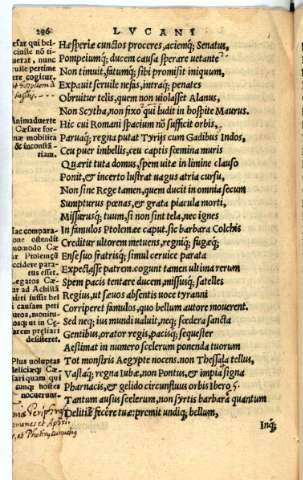 296 LVCANI
Hesperiæ cunctos proceres, aciemq́; Senatus,
Pompeiumq́; ducem causa sperare uetante
Non timuit, fatumq́; sibi promisit iniquum,
Expauit seruile nefas, intraq́; penates
Obruitur telis, quem non uiolasset Alanus,
Non Scytha, non fixo qui ludit in hospite Maurus.
Hic cui Romani spacium non sufficit orbis,
Paruaq́; regna putat Tyrijs cum Gadibus Indos,
Ceu puer imbellis, ceu captis fœmina muris
Quærit tuta domus, spem uitæ in limine clauso
Ponit, & incerto lustrat uagus atria cursu,
Non sine Rege tamen, quem ducit in omnia secum
Sumpturus pœnas, & grata piacula morti,
Missurusq́; tuum, si non sint tela, nec ignes
In famulos Ptolemæe caput. sic barbara Colchis
Creditur ultorem metuens, regniq́; fugæq́;
Ense suo fratrisq́; simul ceruice parata
Expectasse patrem. cogunt tamen ultima rerum
Spem pacis tentare ducem, missusq́; satelles
Regius, ut sæuos absentis uoce tyranni
Corriperet famulos, quo bellum autore mouerent.
Sed neq́; ius mundi ualuit, neq́; fœdera sancta
Gentibus, orator regis, pacisq́; sequester
Aestimat in numero scelerum ponenda tuorum
Tot monstris Aegypte nocens. non Thessala tellus,
Vastaq́; regna Iubæ, non Pontus, & impia signa
Pharnacis, & gelido circumfluus orbis Ibero
Tantum ausus scelerum, non syrtis barbara quantum
Delitiæ fecere tuæ: premit undiq́; bellum,
Inq́;
Animaduerte
Cæsare for-
mobilita
& inconstã
tiam.
hac compara-
one ostendit
Cæ
Ptolemæũ
occidere para-
tus esset,
Legatos Cæ-
ad Achillã
Plus uoluptas
nocuerunt.